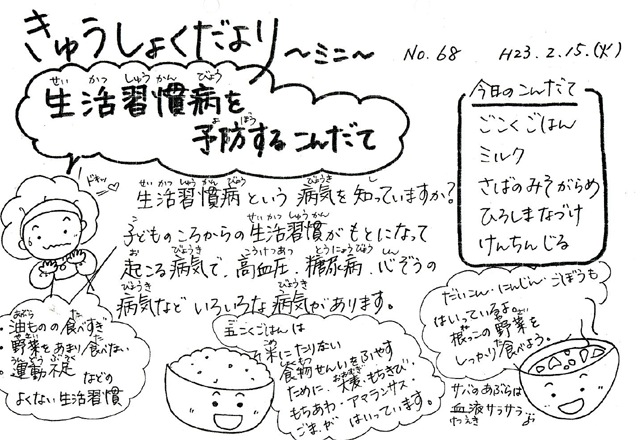 きゅうしょくだより
～ミニ～
No.68
H23.2.15.(火)
生活習慣病を
予防するこんだて
今日のこんだて
ごこくごはん
ミルク
さばのみそがらめ
ひろしまなづけ
けんちんじる
ドキッ
生活習慣病という病気を知っていますか?
子どものころからの生活習慣がもとになって
起こる病気で、高血圧、糖尿病、心ぞうの
病気などいろいろな病気があります。
・油ものの食べすぎ
・野菜をあまり食べない
・運動不足 などの
よくない生活習慣
五こくごはんは
米にたりない
食物せんいをふやす
ために、大麦、もちきび、
もちあわ、アマランサス、
ごまがはいっています。
だいこん、にんじん、ごぼうも
はいっているよ。
根っこの野菜を
しっかり食べよう。
サバのあぶらは
血液サラサラ…よ